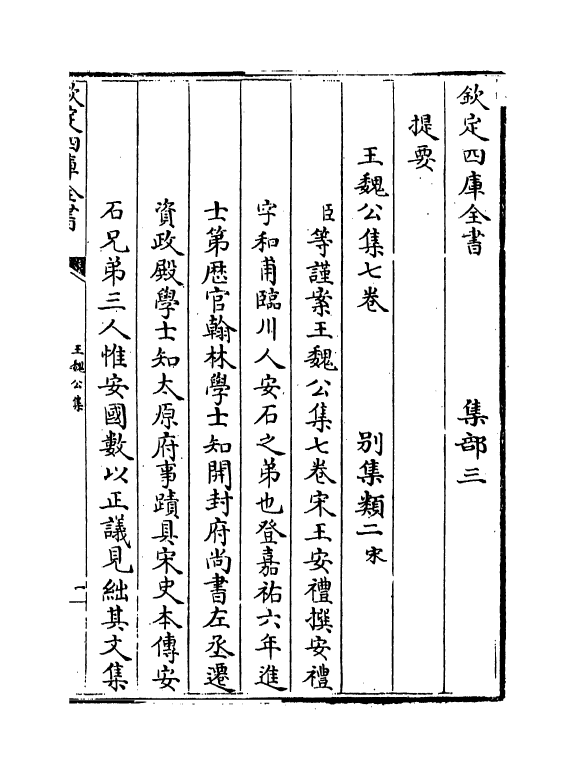 欽定四庫全書　　　　集部三
提要
王魏公集七卷　　　　別集類二宋
臣等謹案王魏公集七卷宋王安禮撰安禮
字和甫臨川人安石之弟也登嘉祐六年進
士第歴官翰林學士知開封府尚書左丞遷
資政殿學士知太原府事蹟具宋史本傳安
石兄弟三人惟安國數以正議見絀其文集
欽定四庫全書
王魏公集
一